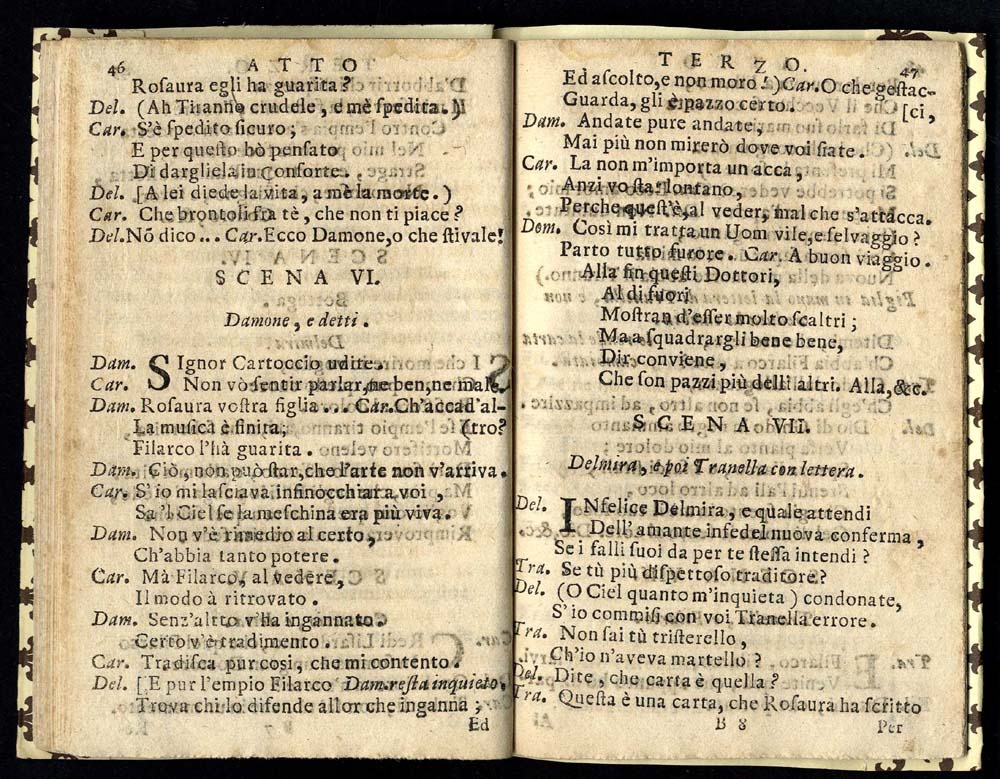 46 ATTO
Rosaura egli ha guarita?
Del. (Ah Tiranno crudele, e mè spedita.)
Car. S'è spedito sicuro;
E per questo hò pensato
Di dargliela in Consorte.
Del. [A lei diede la vita, a mè la morte.)
Car. Che brontoli fra tè, che non ti piace?
Del. Nõ dico ... Car. Ecco Damone, o che stivale!
SCENA VI.
Damone, e detti.
Dam. SIgnor Cartoccio udite.
Car. Non vò sentir parlar, ne ben, ne male.
Dam. Rosaura vostra figlia... Car. Ch'accad'al-
La musica è finita; (tro?
Filarco l'hà guarita.
Dam. Ciò, non può star, che l'arte non v'arriva.
Car. S'io mi lasciava infinocchiar a voi,
Sa 'l Ciel se la meschina era più viva.
Dam. Non v'è rimedio al certo,
Ch'abbia tanto potere.
Car. Mà Filarco, al vedere,
Il modo à ritrovato.
Dam. Senz'altto v'ha ingannato.
Certo v'è tradimento.
Car. Tradisca pur cosi, che mi contento.
Del. [E pur l'empio Filarco Dam. resta inquieto,
Trova chi lo difende allor che inganna;
Ed
TERZO. 47
Ed ascolto, e non moro!) Car. O che gestac-
Guarda, gli è pazzo certo. [ci,
Dam. Andate pure andate,
Mai più non mirerò dove voi siate.
Car. La non m'importa un acca,
Anzi vo sta: lontano,
Perche quest'è, al veder, mal che s'attacca.
Dom. Così mi tratta un Uom vile, e selvaggio?
Parto tutto furore. Car. A buon viaggio.
Alla fin questi Dottori,
Al di fuori
Mostran d'esser molto scaltri;
Ma a squadrargli bene bene,
Dir conviene,
Che son pazzi più delli altri. Alla, &c.
SCENA VII.
Delmira, e poi Tranella con lettera.
Del. INfelice Delmira, e quale attendi
Dell'amante infedel nuova conferma,
Se i falli suoi da per te stessa intendi?
Tra. Se tù più dispettoso traditore?
Del. (O Ciel quanto m'inquieta) condonate,
S'io commisi con voi Tranella errore.
Tra. Non sai tù tristerello,
Ch'io n'aveva martello?
Del. Dite, che carta è quella?
Tra. Questa è una carta, che Rosaura ha scritto
B 8 Per